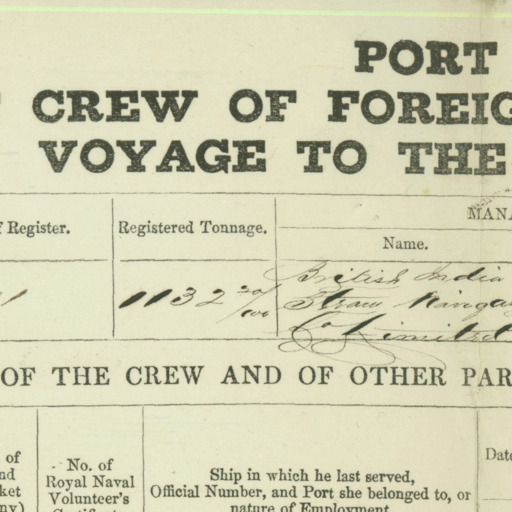 PORT
CREW OF FOREIG
VOYAGE TO THE
MANA
f Register.
Registered Tonnage.
Name.
1132 20/100
British India
Steam Naviga
Co Limited
OF THE CREW AND OF OTHER PAR
of
nd
ket
ny)
No. of
Royal Naval
Volunteer's
Certificate
Ship in which he last served,
Official Number, and Port she belonged to, or
nature of Employment
Date